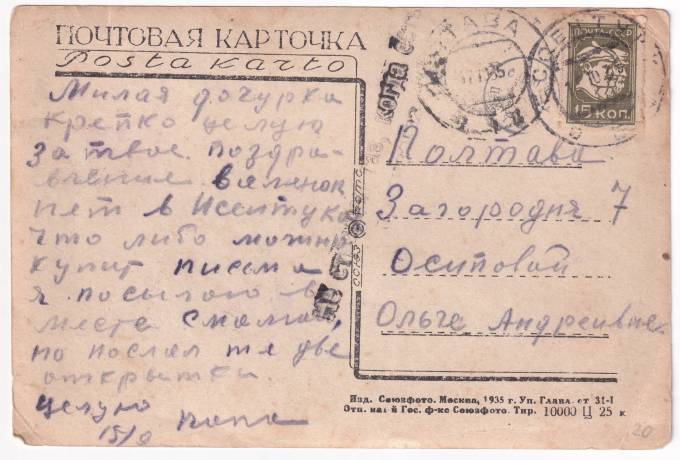 ПОЧТОВАЯ КАРТОЧКА
Poŝta karto
Милая дочурка
крепко целую
за твое поздра-
вление валенок
нет в Иссентука
что либо можно
купит письма
я посылаю в
месте с мамой,
но послал те две
открытки.
целую
папа
ПОЛТАВА
ПОЧТА СССР
15 КОП.
СОЮЗФОТО
Полтава
Загородня 7
Осиповой
Ольге Андреивне
Изд. Союзфото. Москва, 1935 г. Уп. Главл. ст 31-1
Гос. ф-ке Союзфото. Тир. 10000 Ц 25 к
20